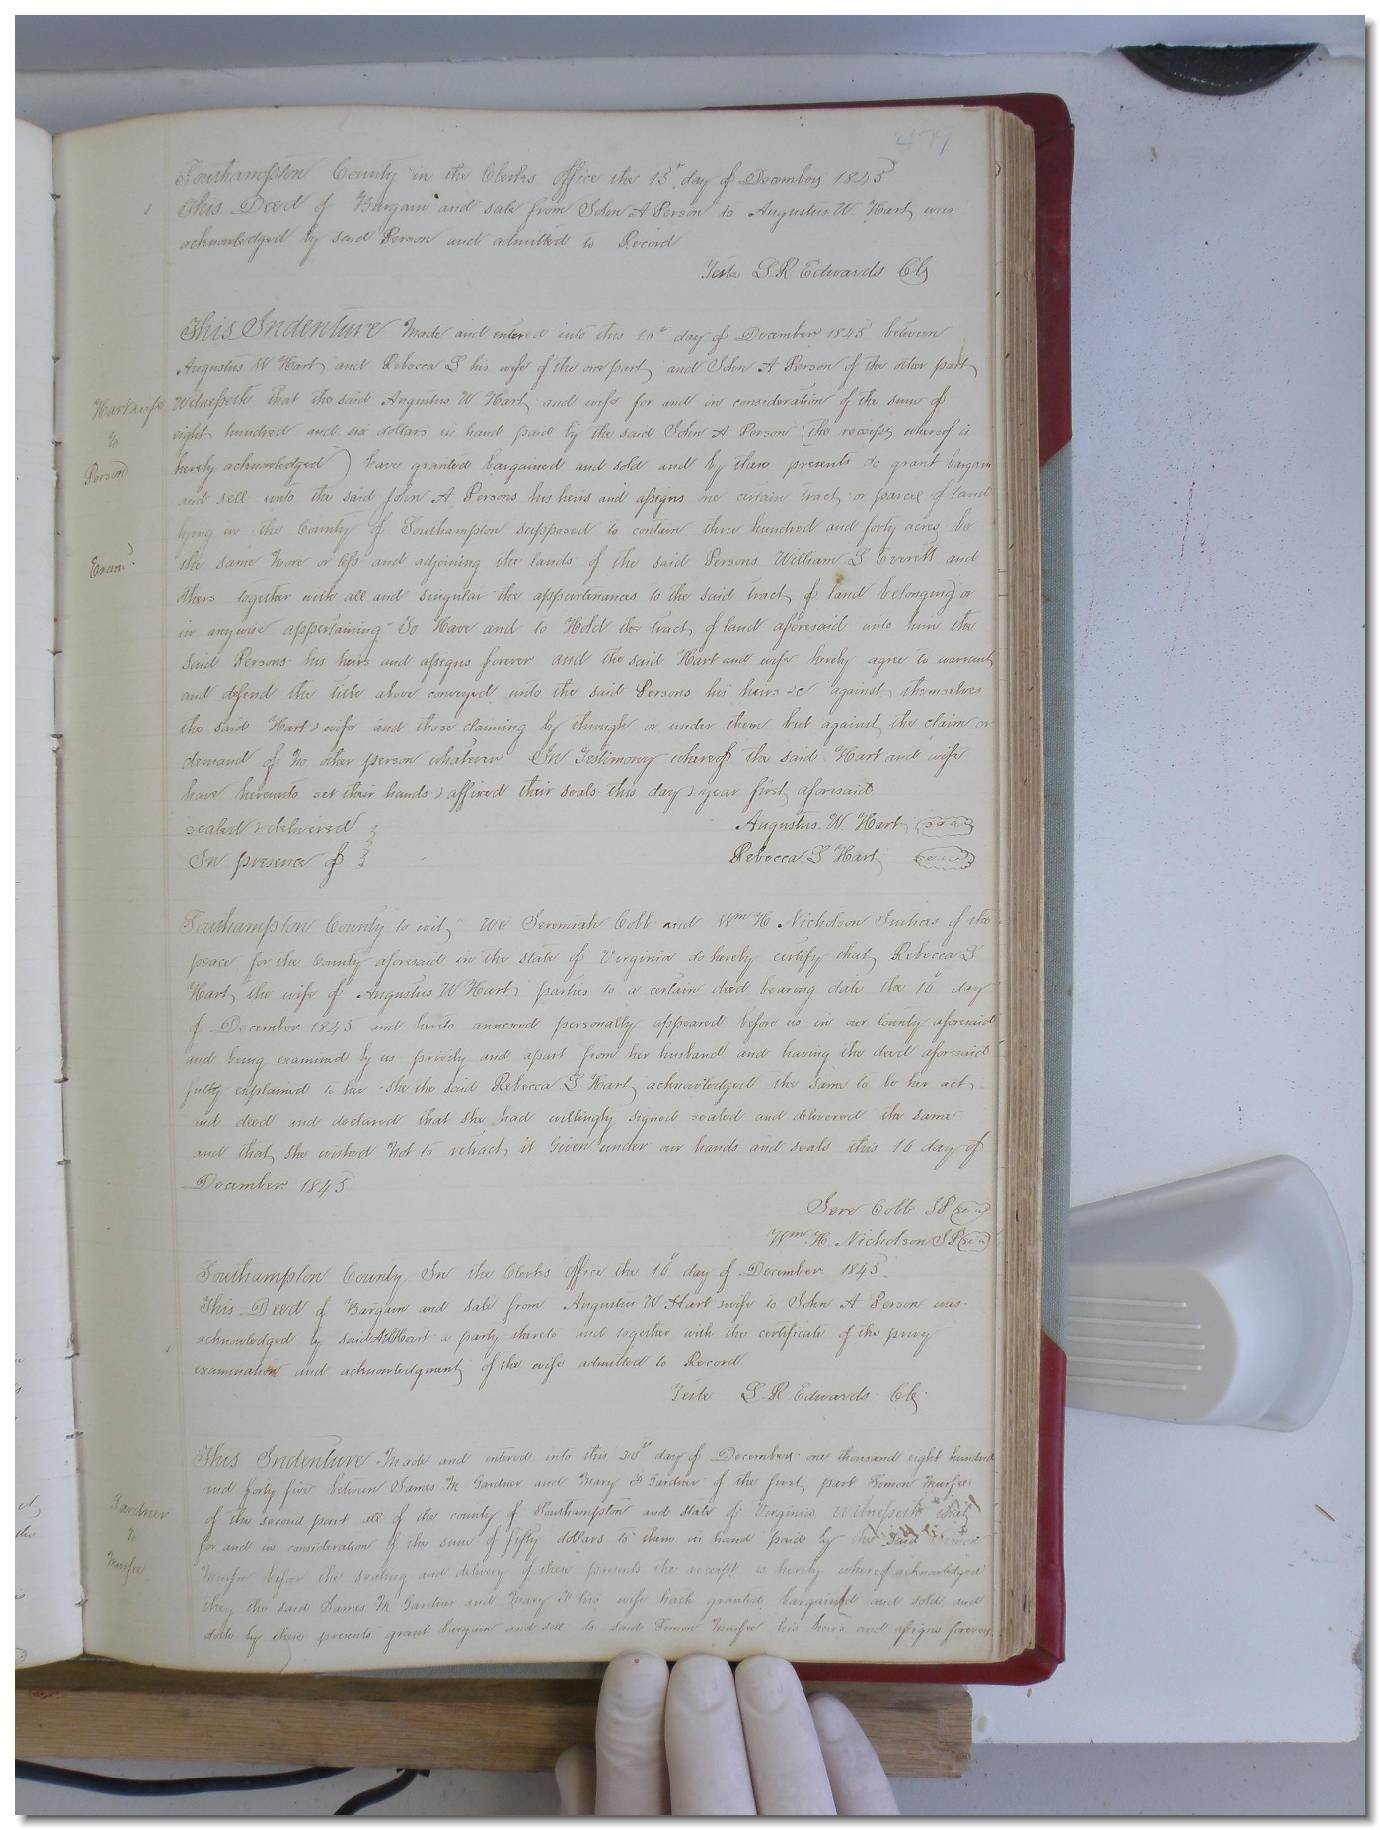 479
Southampton County in the Clerks office the 15th day of December 1845
This Deed of Bargain and sale from John A Person to Augustus W. Hart was
acknowledged by said Person and admitted to Record
Teste L. R. Edwards Clk
This Indenture Made and entered into this 16th day of December 1845 between
Augustus W Hart and Rebecca S his wife of the one part and John A Person of the other part
Hart & wife
to
Person
Exam.d
Witnesseth that the said Augustus W Hart and wife for and in consideration of the sum of
eight hundred and six dollars in hand paid by the said John A Person (the receipt whereof is
hereby acknowledged) have granted bargained and sold and by these presents do grant bargain
and sell unto the said John A Persons his heirs and assigns one certain tract or parcel of land
lying in the County of Southampton supposed to contain three hundred and forty acres be
the same more or less and adjoining the lands of the said Persons William S Everett and
others together with all and singular the appurtenances to the said tract of land belonging or
in anywise appertaining To Have and to Hold the tract of land aforesaid unto him the
said Persons his heirs and assigns forever and the said Hart and wife hereby agree to warrant
and defend the title above conveyed unto the said Persons his heirs &c against themselves
the said Hart & wife and those claiming by through or under them but against the claim or
demand of no other person whatever In Testimony whereof the said Hart and wife
have hereunto set their hands & affixed their seals this day & year first aforesaid
sealed & delivered
In presence of
Augustus. W. Hart seal
Rebecca S Hart seal
Southampton County to wit, We Jeremiah Cobb and Wm H Nicholson Justices of the
peace for the County aforesaid in the state of Virginia do hereby certify that Rebecca S
Hart the wife of Augustus W Hart parties to a certain deed bearing date the 16th day
of December 1845 and hereto annexed personally appeared before us in our County aforesaid
and being examined by us privily and apart from her husband and having the deed aforesaid
fully explained to her she the said Rebecca S Hart acknowledged the same to be her act
and deed and declared that she had willingly signed sealed and delivered the same
and that she wished not to retract it Given under our hands and seals this 16 day of
December 1845
Jere Cobb JP seal
Wm. H. Nicholson JP seal
Southampton County In the Clerks office the 16th day of December 1845
This Deed of Bargain and sale from Augustus W Hart & wife to John A Person was
acknowledged by said AW Hart a party thereto and together with the certificate of the privy
examination and acknowledgment of the wife admitted to Record
Teste L. R. Edwards Clk
This Indenture Made and entered into this 20th day of December one thousand eight hundred
and forty five between James M Gardner and Mary Gardner of the first part Simon Murfee
Gardner
to
Murfee
of the second part all of the county of Southampton and state of Virginia Witnesseth that
for and in consideration of the sum of fifty dollars to them in hand paid by the said Simon
Murfee before the sealing and delivery of these presents the receipt is hereby whereof acknowledged
they the said James M Gardner and Mary his wife hath granted bargained and sold and
doth by these presents grant bargain and sell to said Simon Murfee his heirs and assigns forever